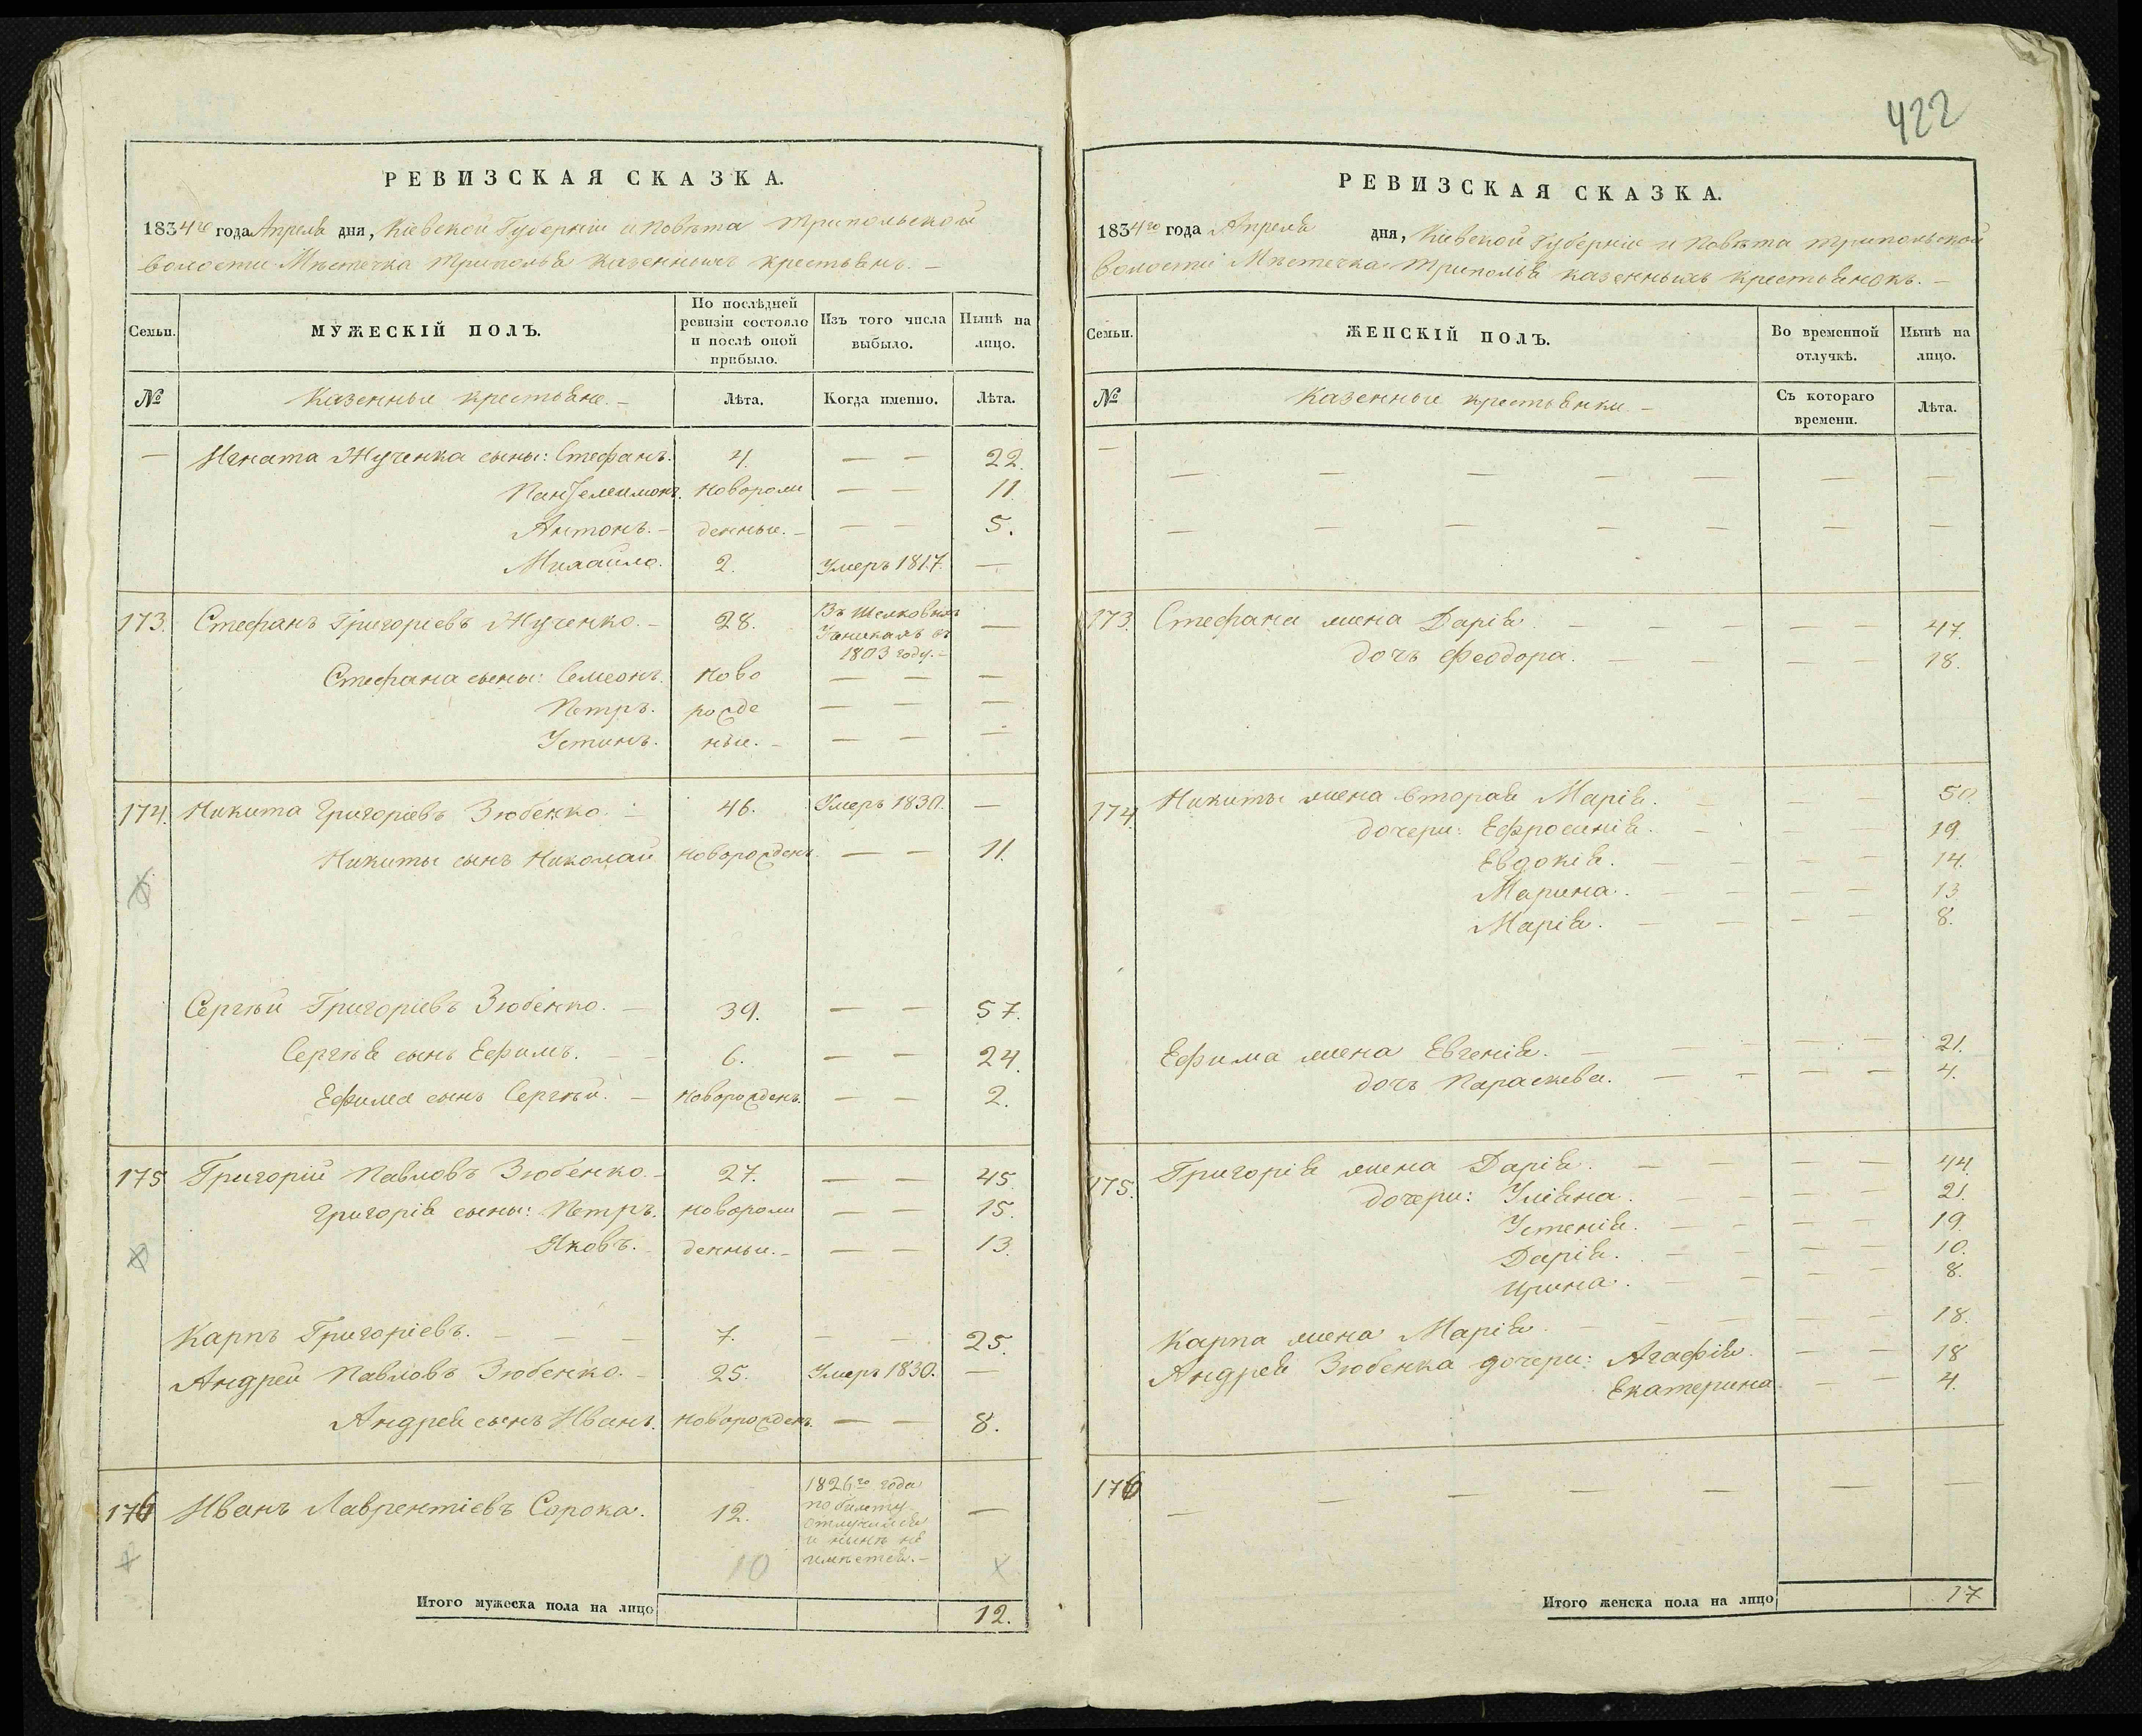 РЕВИЗСКАЯ СКАЗКА.
1834го года Апреля дня, Кіевской Губерніи и Повѣта Трипольской
волости Мѣстечка Триполья казенныхъ крестьянъ. —
Семьи. МУЖЕСКІЙ ПОЛЪ. По послѣдней ревизіи состояло и послѣ оной прибыло. Изъ того числа выбыло. Нынѣ на лицо.
№ Казенные крестьяне. — Лѣта. Когда именно. Лѣта.
— Игната Жученка сыны: Стефанъ. 4. — — 22.
Пантелеимонъ. новорож — — 11.
Антонъ. — денные. — — — 5.
Михайло. 2. Умеръ 1817. —
173. Стефанъ Григоріевъ Жученко. — 28. Въ Шелковыхъ
1803 году. — —
Стефана сыны: Семеонъ. ново — — —
Петръ. рожде — — —
Устинъ. ные. — — — —
174. Никита Григоріевъ Зюбенко. — 46. Умеръ 1830. —
Никиты сынъ Николай новорожденъ. — — 11.
Сергѣй Григоріевъ Зюбенко. — 39. — — 57.
Сергѣя сынъ Ефимъ. — — 6. — — 24.
Ефима сынъ Сергѣй. — новорожденъ. — — 2.
175 Григорій Павловъ Зюбенко. — 27. — — 45.
Григорія сыны: Петръ. новорож — — 15.
Яковъ. денные. — — — 13.
Карпъ Григоріевъ. — — — 7. — — 25.
Андрей Павловъ Зюбенко. — 25. Умеръ 1830. —
Андрея сынъ Иванъ. новорожденъ. — — 8.
176 Иванъ Лаврентіевъ Сорока. 12. 1826го года
по билету
отлучился
и нынѣ не
имѣется. — —
10 х
Итого мужеска пола на лицо 12.
422
РЕВИЗСКАЯ СКАЗКА.
1834го года Апреля дня, Кіевской Губерніи и Повѣта Трипольской
Волости Мѣстечка Триполья казенныхъ крестьянокъ. —
Семьи. ЖЕНСКІЙ ПОЛЪ. Во временной отлучкѣ. Нынѣ на лицо.
№ Казенные крестьянки — Съ котораго времени. Лѣта.
— — — — — — — —
— — — — — — —
173. Стефана жена Дарія. — — — — — 47.
дочь Феодора. — — — — 18.
174. Никиты жена вторая Марія. — — — 50.
дочери: Ефросинія. — — — — 19.
Евдокія. — — — — 14.
Марина. — — — — 13
Марія. — — — — 8.
Ефима жена Евгенія. — — — — — 21.
дочь Параскева. — — — — 4.
175. Григорія жена Дарія. — — — — — 44.
дочери: Уліяна. — — — — 21.
Устенія. — — — — 19.
Дарія. — — — — 10.
Ирина. — — — — 8.
Карпа жена Марія. — — — — — 18.
Андрея Зюбенка дочери: Агафія. — — 18
Екатерина — — 4.
176 — — — — — — — —
Итого женска пола на лицо 17